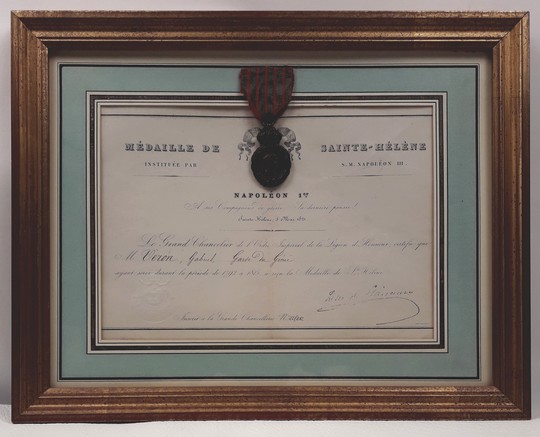 MÉDAILLE DE SAINTE-HÉLÈNE
INSTITUÉE PAR S. M. NAPOLÉON III.
NAPOLÉON 1er
A ses Compagnons de gloire, la dernière pensée!
Sainte-Hélène, 5 Mai 1821
Le Grand Chancelier de l'Ordre Impérial de la Légion d'Honneur, certifie que
M. Veron, Gabriel, du Génie
ayant servi durant la période de 1792 à 1815, a reçu la Médaille de Ste Hélène.
Inscrit à la Grande Chancellerie, No